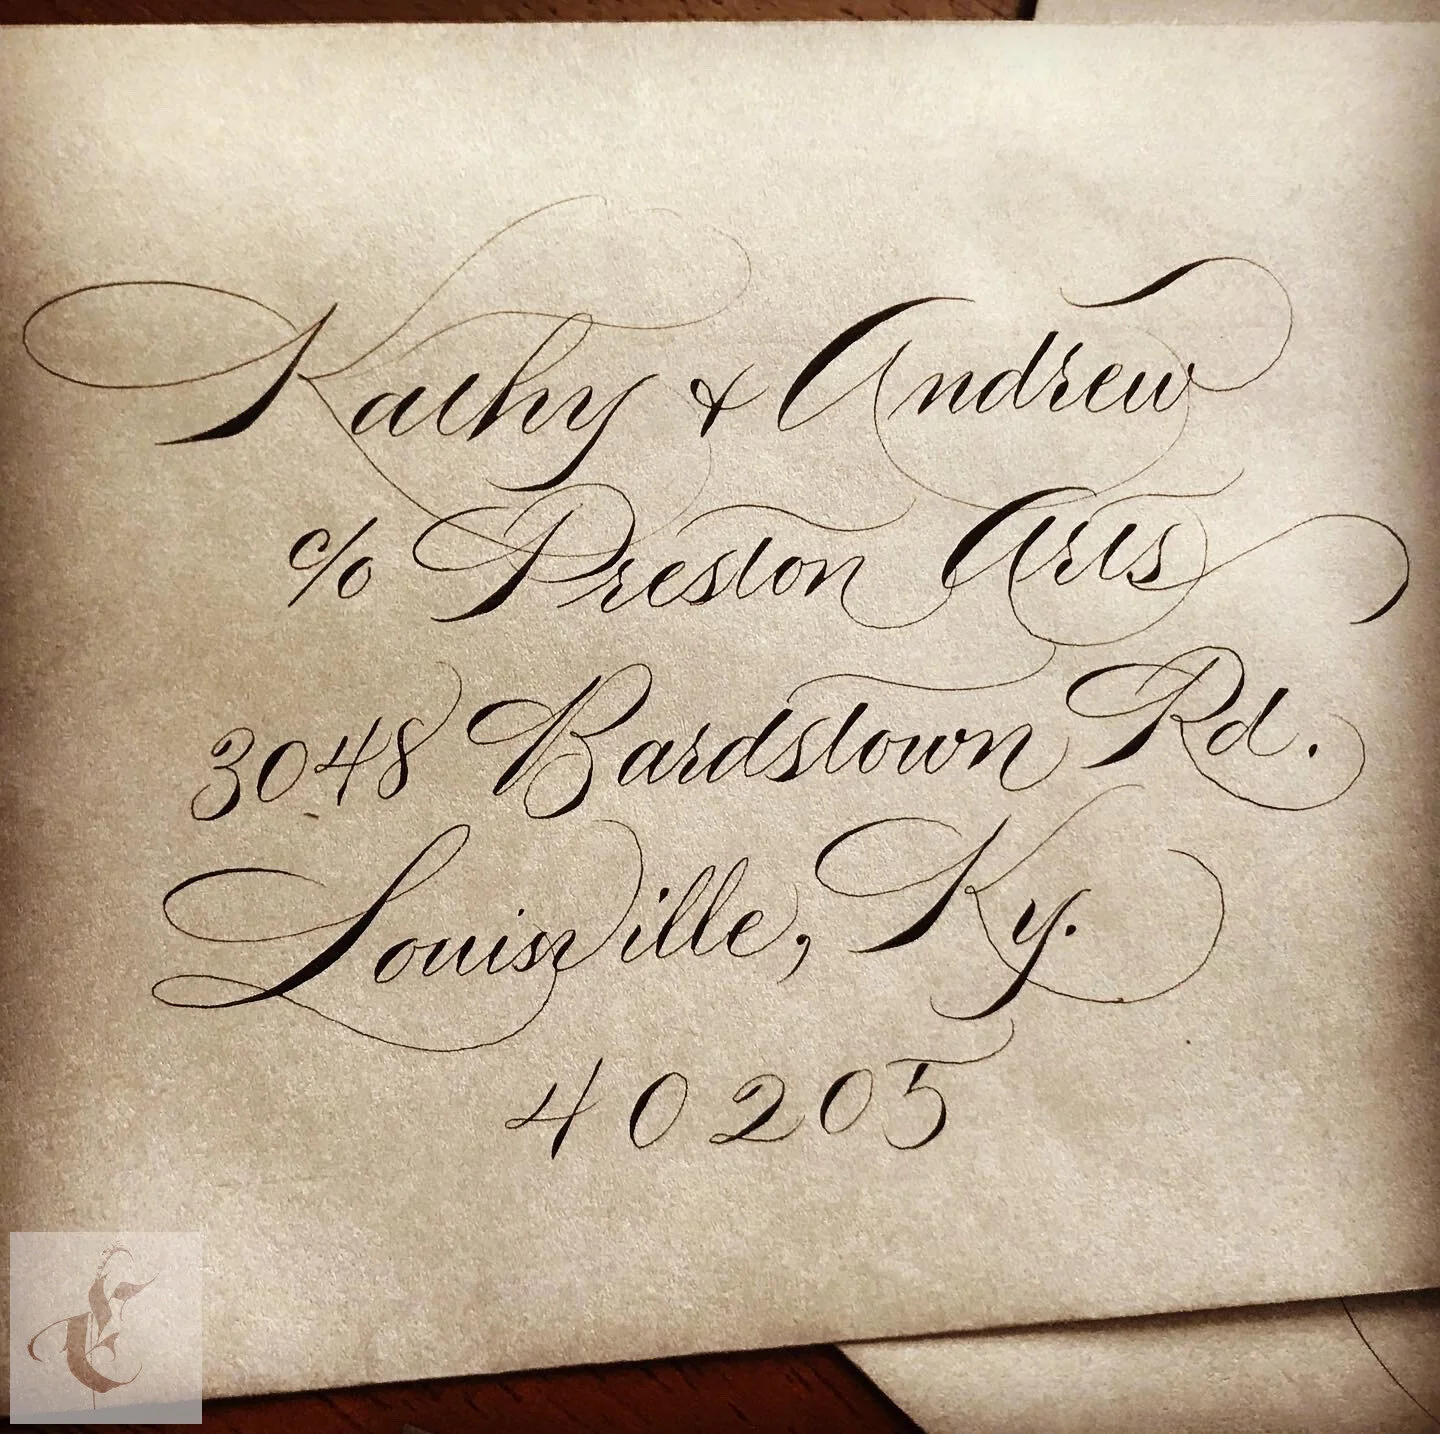 Kathy & Andrew
c/o Preston Arts
3048 Bardstown Rd.
Louisville, Ky.
40205